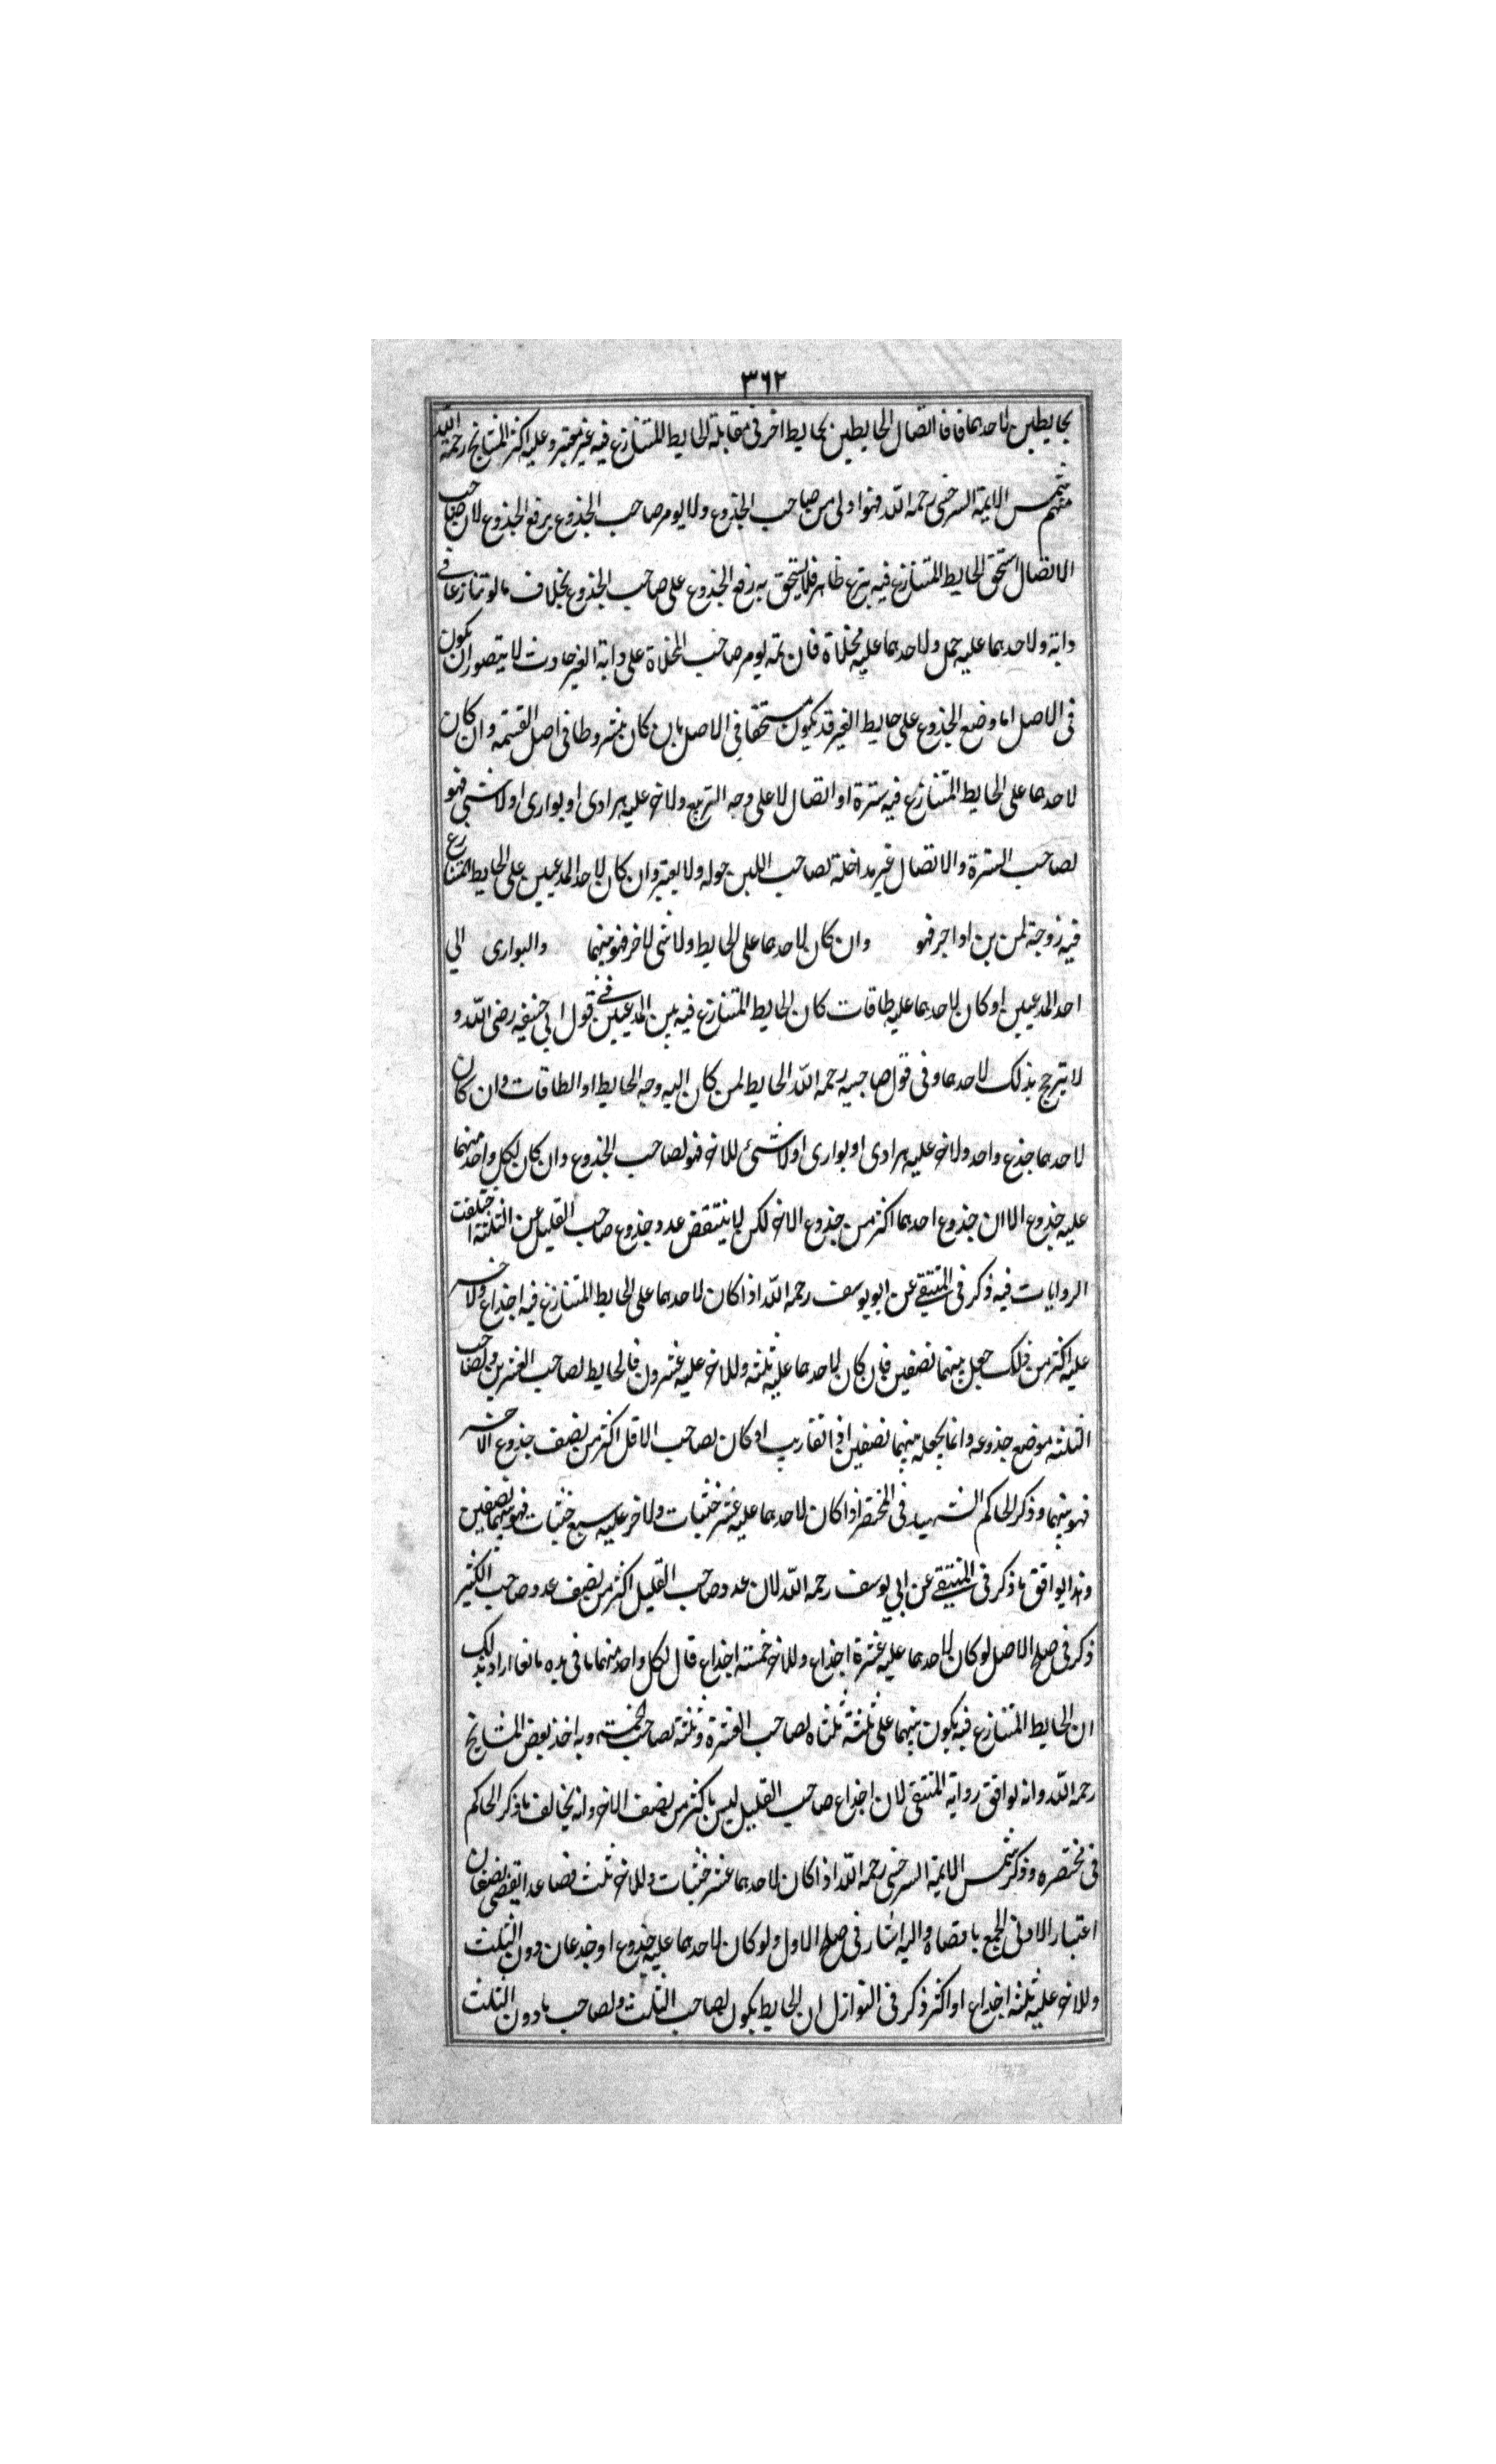 ٣٦٢
بحايطين لاحدهما فاما اتصال الحايطين بحايط اخر فى مقابلة الحايط المتنازع فيه غير معتبر وعليه اكثر المشايخ رحمه الله
منهم شمس الايمة السرخسى رحمه الله فهو اولى من صاحب الجذوع ولا يومر صاحب الجذوع برفع الجذوع لان صاحب
الاتصال استحق الحايط المتنازع فيه بنوع ظاهر فلا يستحق به رفع الجذوع على صاحب الجذوع بخلاف ما لو تنازعا فى
دابة ولاحدهما عليه حمل ولاحدهما عليه مخلاة فان ثمه يومر صاحب المخلاة على دابة الغير حادث لا يتصور ان يكون
فى الاصل اما وضع الجذوع على حايط الغير قد يكون مستحقا فى الاصل بان كان مشروطا فى اصل القسمة وان كان
لاحدهما على الحايط المتنازع فيه سترة او اتصال لا على وجه التربيع ولاخر عليه هرادى او بوارى او لا شئى فهو
لصاحب السترة والاتصال غير مداخلة لصاحب اللبن حوله ولا يعتبر وان كان لاحد المدعيين على الحايط المتنازع
فيه زوجة لمن بن او اجر فهو وان كان لاحدهما على الحايط ولا شى لاخر فهو بينهما والبوارى الى
احد المدعيين او كان لاحدهما عليه طاقات كان الحايط المتنازع فيه بين المدعيين فى قول ابي حنيفه رضى الله و
لا يترجح بذلك لاحدهما وفى قول صاحبيه رحمه الله الحايط لمن كان اليه وجه الحايط او الطاقات وان كان
لاحدهما جذع واحد ولاخر عليه هرادى او بوارى او لا شئى للاخر فهو لصاحب الجذوع وان كان لكل واحد منهما
عليه جذوع الا ان جذوع احدهما اكثر من جذوع الاخر لكن لا ينتقض عدد جذوع صاحب القليل عن الثلثة اختلفت
الروايات فيه ذكر فى المنتقى عن ابو يوسف رحمه الله اذا كان لاحدهما على الحايط المتنازع فيه اجذاع ولاخر
عليه اكثر من ذلك جعل بينهما نصفين فان كان لاحدهما عليه ثلثه وللاخر عليه عشرون فالحايط لصاحب العشرين ولصاحب
الثلثه موضع جذوعه وانما يجعله بينهما نصفين اذا تقارب او كان لصاحب الاقل اكثر من نصف جذوع الاخر
فهو بينهما وذكر الحاكم الشهيد فى المختصر اذا كان لاحدهما عليه عشر خشبات ولاخر عليه سبع خشبات فهو بينهما نصفين
وهذا يوافق ما ذكر فى المنتقى عن ابي يوسف رحمه الله لان عدد صاحب القليل اكثر من نصف عدد صاحب الكثير
ذكر فى صلح الاصل لو كان لاحدهما عليه عشرة اجذاع وللاخر خمسته اجذاع قال لكل واحد منهما ما فى يده انما اراد بذلك
ان الحايط المتنازع فيه يكون بينهما على ثلثة ثلثاه لصاحب العشرة وثلثه لصاحب الخمسة وبه اخذ بعض المشايخ
رحمه الله وانه يوافق رواية المنتقى لان اجذاع صاحب القليل ليس باكثر من نصف الاخر وانه يخالف ما ذكر الحاكم
فى مختصره وذكر شمس الايمة السرخسى رحمه الله اذا كان لاحدهما عشر خشبات وللاخر ثلث فصاعدا يقضى نصفان
اعتبار الادنى الجمع باقصاه واليه اشار فى صلح الاول ولو كان لاحدهما عليه جذوع او جذعان دون الثلث
وللاخر عليه ثلثه اجذاع او اكثر ذكر فى النوازل ان الحايط يكون لصاحب الثلث ولصاحب ما دون الثلث